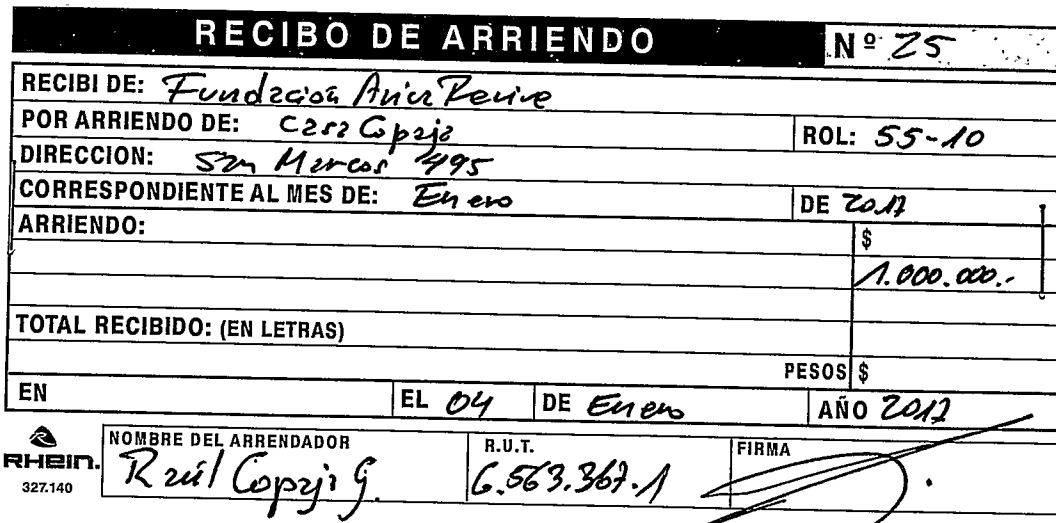 RECIBO DE ARRIENDO Nº 25
RECIBI DE: Fundacion Arica Revive
POR ARRIENDO DE: Casa Copaja ROL: 55-10
DIRECCION: San Marcos 495
CORRESPONDIENTE AL MES DE: Enero DE 2017
ARRIENDO: $
1.000.000.-
TOTAL RECIBIDO: (EN LETRAS)
PESOS $
EN EL 04 DE Enero AÑO 2017
NOMBRE DEL ARRENDADOR R.U.T. FIRMA
RHEIN. Raúl Copaja G. 6.563.367.1
327.140